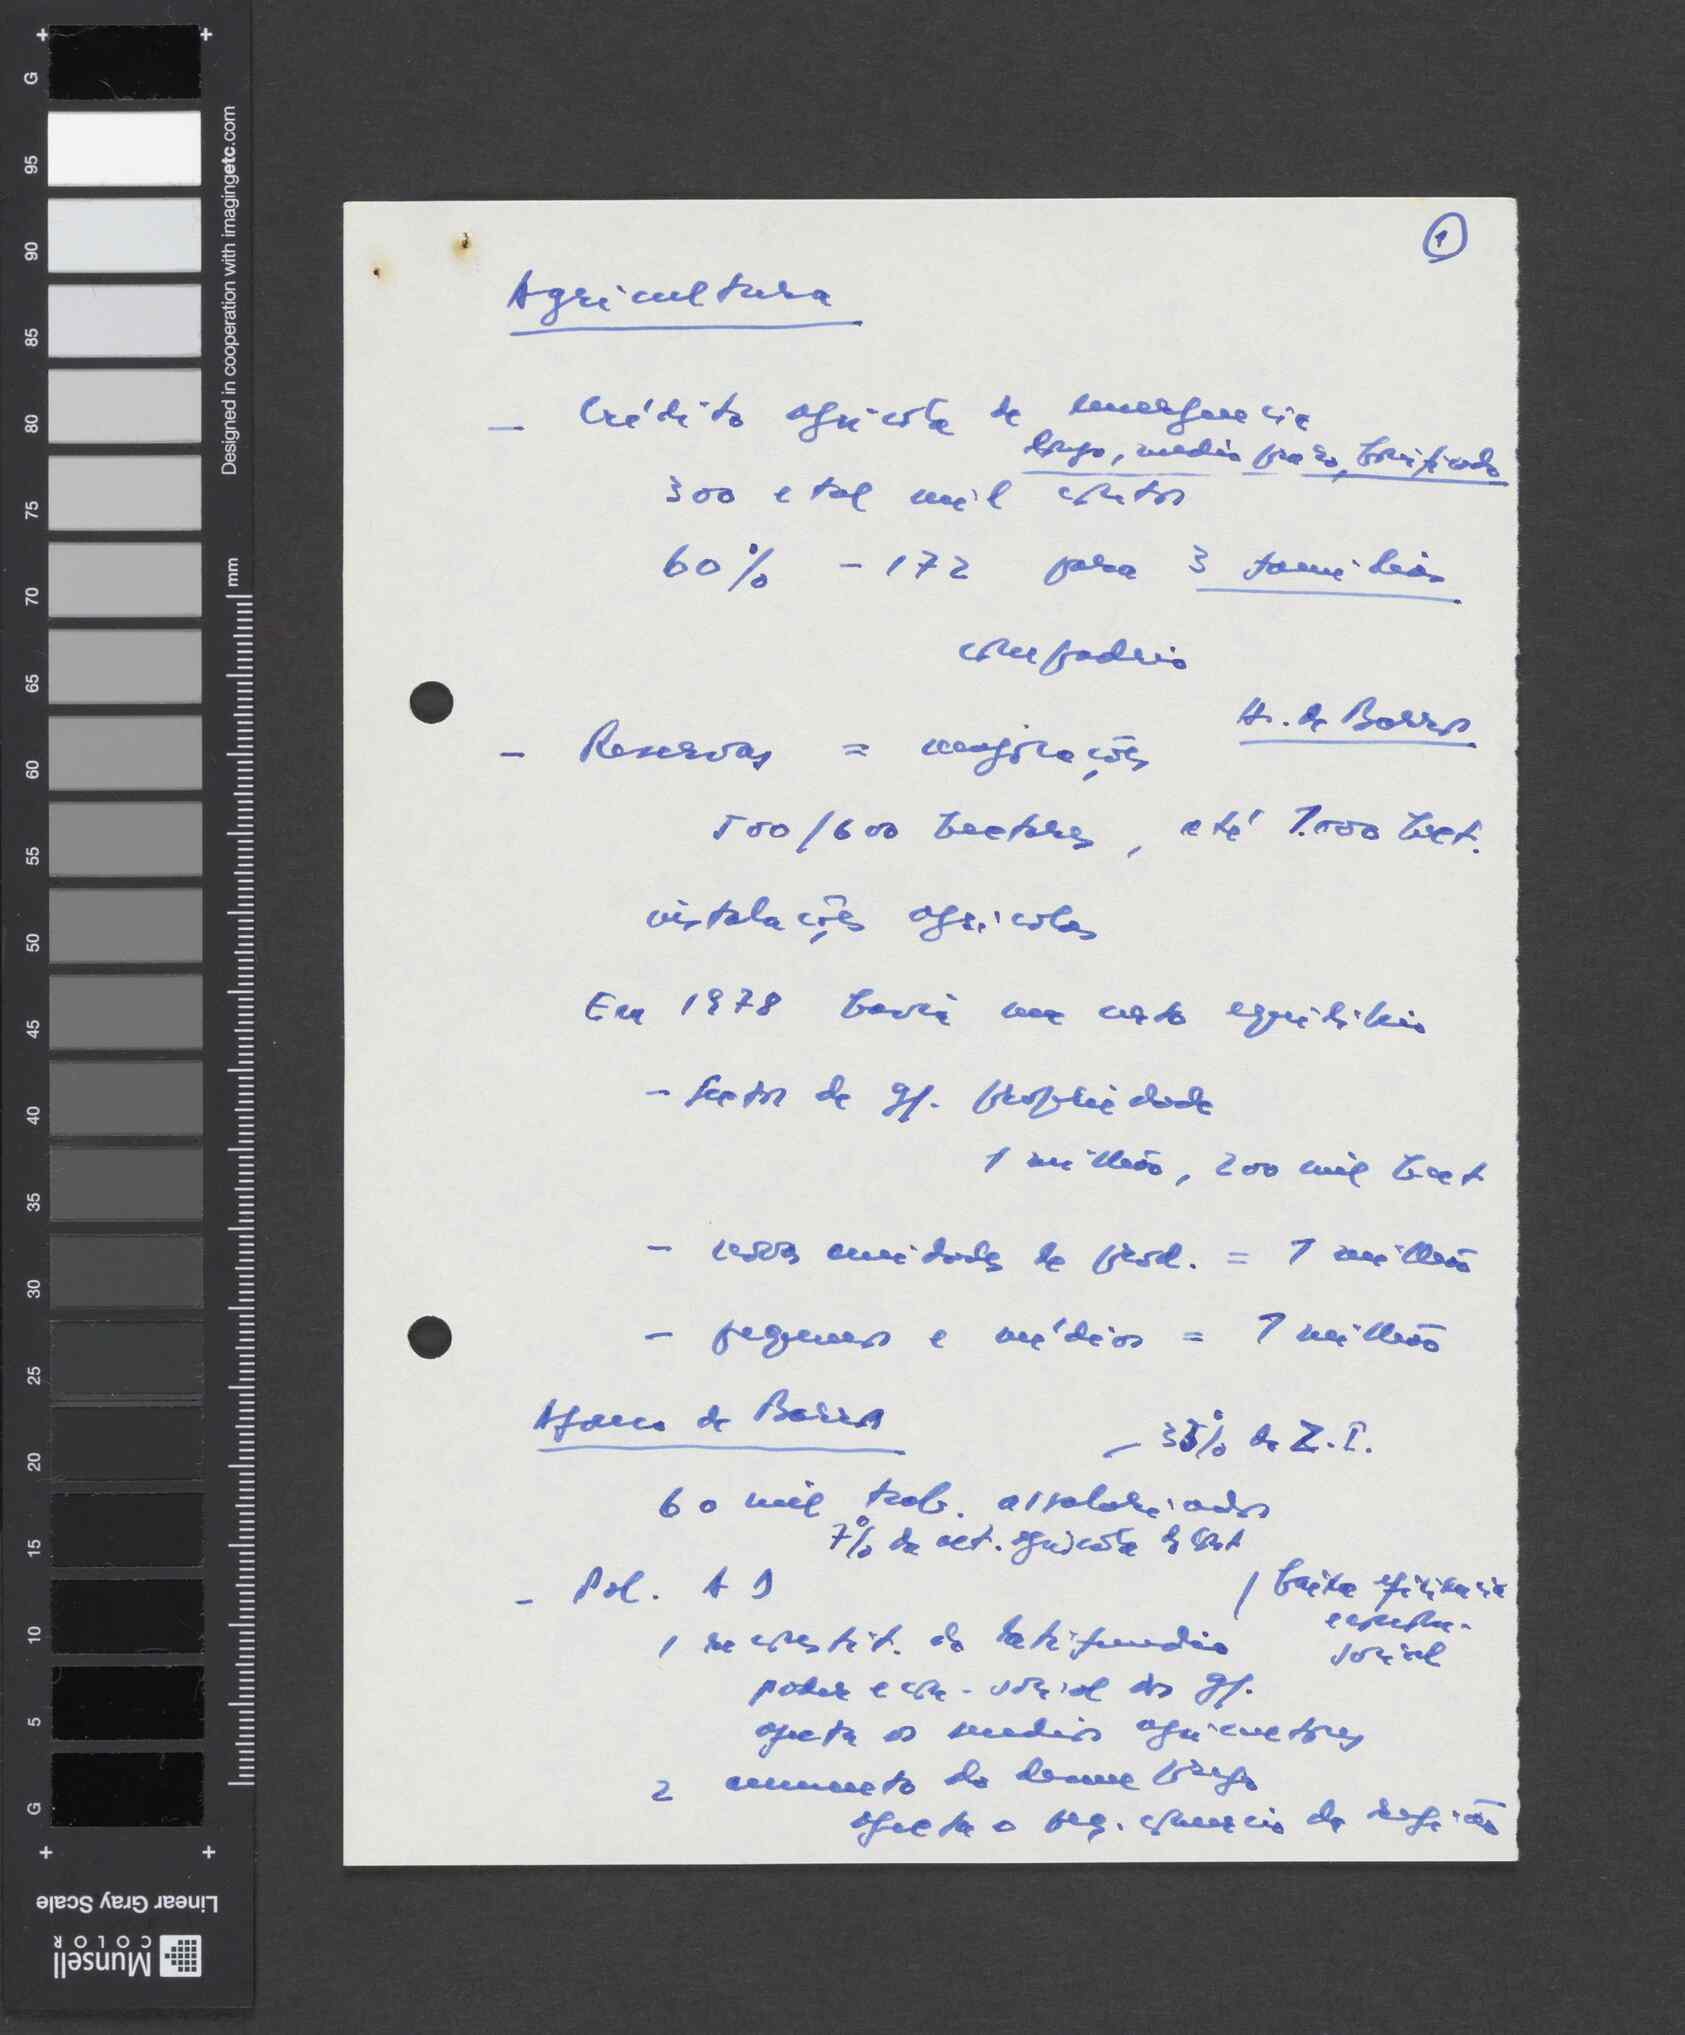 ①
Agricultura
– Crédito agricola de emergencia
longo, medio prazo, bonificado
300 e tal mil contos
60% – 172 para 3 familias
compadrio
A. de Barros
– Reservas = majorações
500/600 hectares, até 1.000 hect.
instalações agricolas
Em 1978 havia um certo equilibrio
– Sector de gr. propriedade
1 milhão, 200 mil hect
– novas unidades de prod. = 1 milhão
– pequenos e médios = 1 milhão
Afonso de Barros
– 35% da Z.I.
60 mil trab. assalariados
7% da act. agricola
– Pol. AD
/ baixa eficiencia
social
1 reconstit. do latifundio
poder econ-social dos gr.
afecta os medios agricultores
2 aumento do desemprego
afecta o peq. comercio da região
G
95
90
85
80
75
70
65
60
55
50
45
40
35
30
25
20
15
10
5
G
Designed in cooperation with imagingetc.com
mm
Linear Gray Scale
Munsell
COLOR